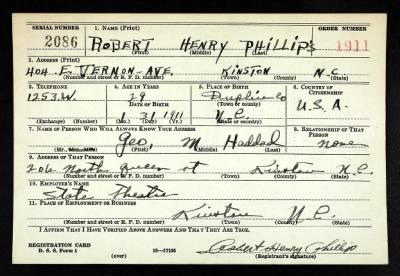 SERIAL NUMBER 1. NAME (Print) ORDER NUMBER
2086 ROBERT HENRY PHILLIPS 1911
(First) (Middle) (Last)
2. ADDRESS (Print)
404 E. VERNON-AVE. KINSTON N.C.
(Number and street or R. F. D. number) (Town) (County) (State)
3. TELEPHONE 4. AGE IN YEARS 5. PLACE OF BIRTH 6. COUNTRY OF CITIZENSHIP
1253.W. 29 Duplin Co
DATE OF BIRTH (Town or county) U.S.A.
31 1911 N.C.
(Exchange) (Number) (Mo.) (Day) (Yr.) (State or country)
7. NAME OF PERSON WHO WILL ALWAYS KNOW YOUR ADDRESS 8. RELATIONSHIP OF THAT PERSON
Geo, M Haddad none
(Mr., Mrs., Miss) (First) (Middle) (Last)
9. ADDRESS OF THAT PERSON
206 North Queen st Kinston N.C.
(Number and street or R. F. D. number) (Town) (County) (State)
10. EMPLOYER'S NAME
State Theatre
11. PLACE OF EMPLOYMENT OR BUSINESS
Kinston N.C.
(Number and street or R. F. D. number) (Town) (County) (State)
I AFFIRM THAT I HAVE VERIFIED ABOVE ANSWERS AND THAT THEY ARE TRUE.
REGISTRATION CARD
D. S. S. Form 1 (over) 16—17105 Robert Henry Phillips
(Registrant's signature)